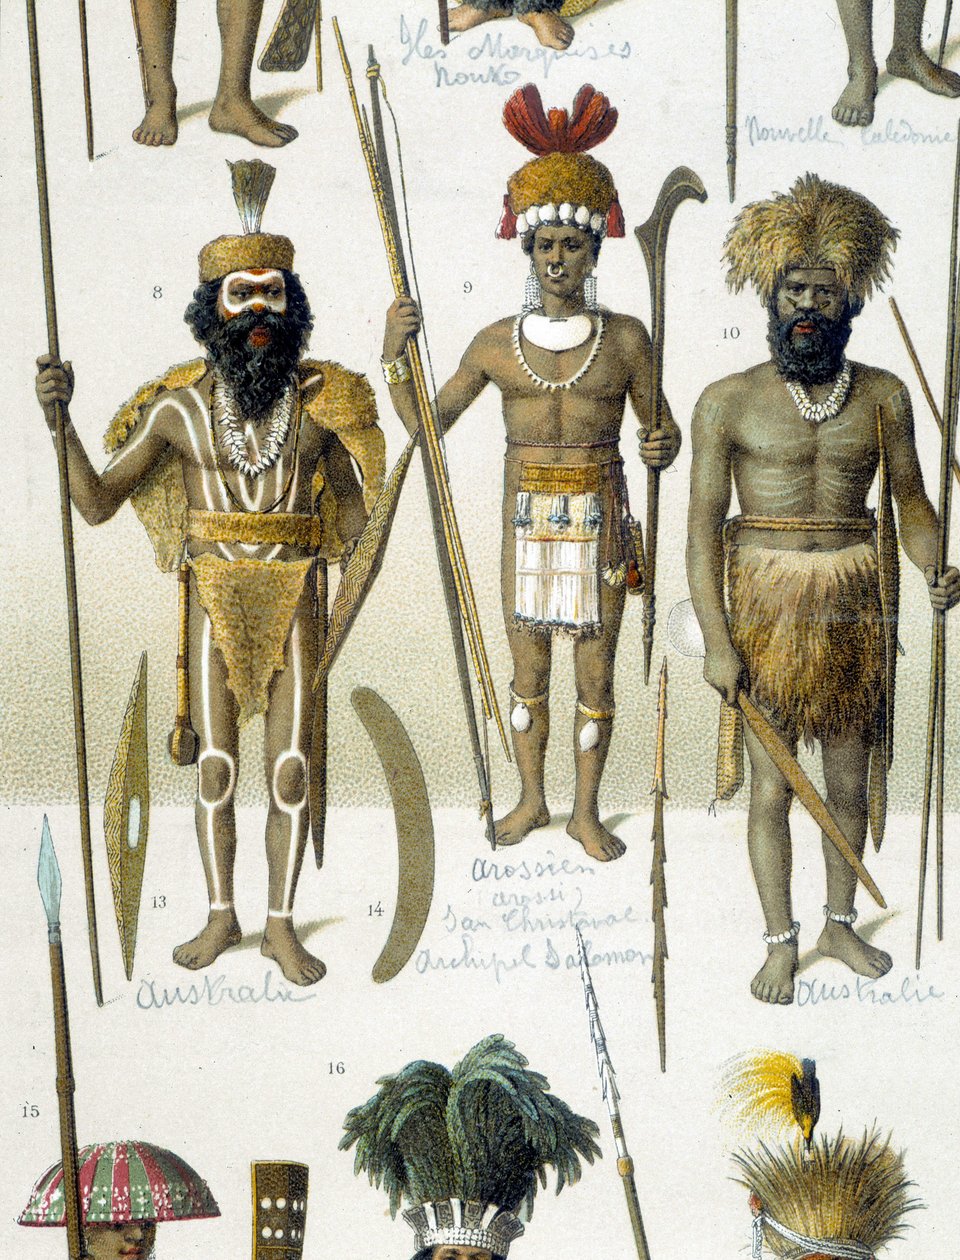 Iles Marquises
Nouka
Nouvelle Calédonie
8
9
10
13
14
Arossien
(arossi)
San Christoval
Archipel Salomon
Australie
Australie
15
16